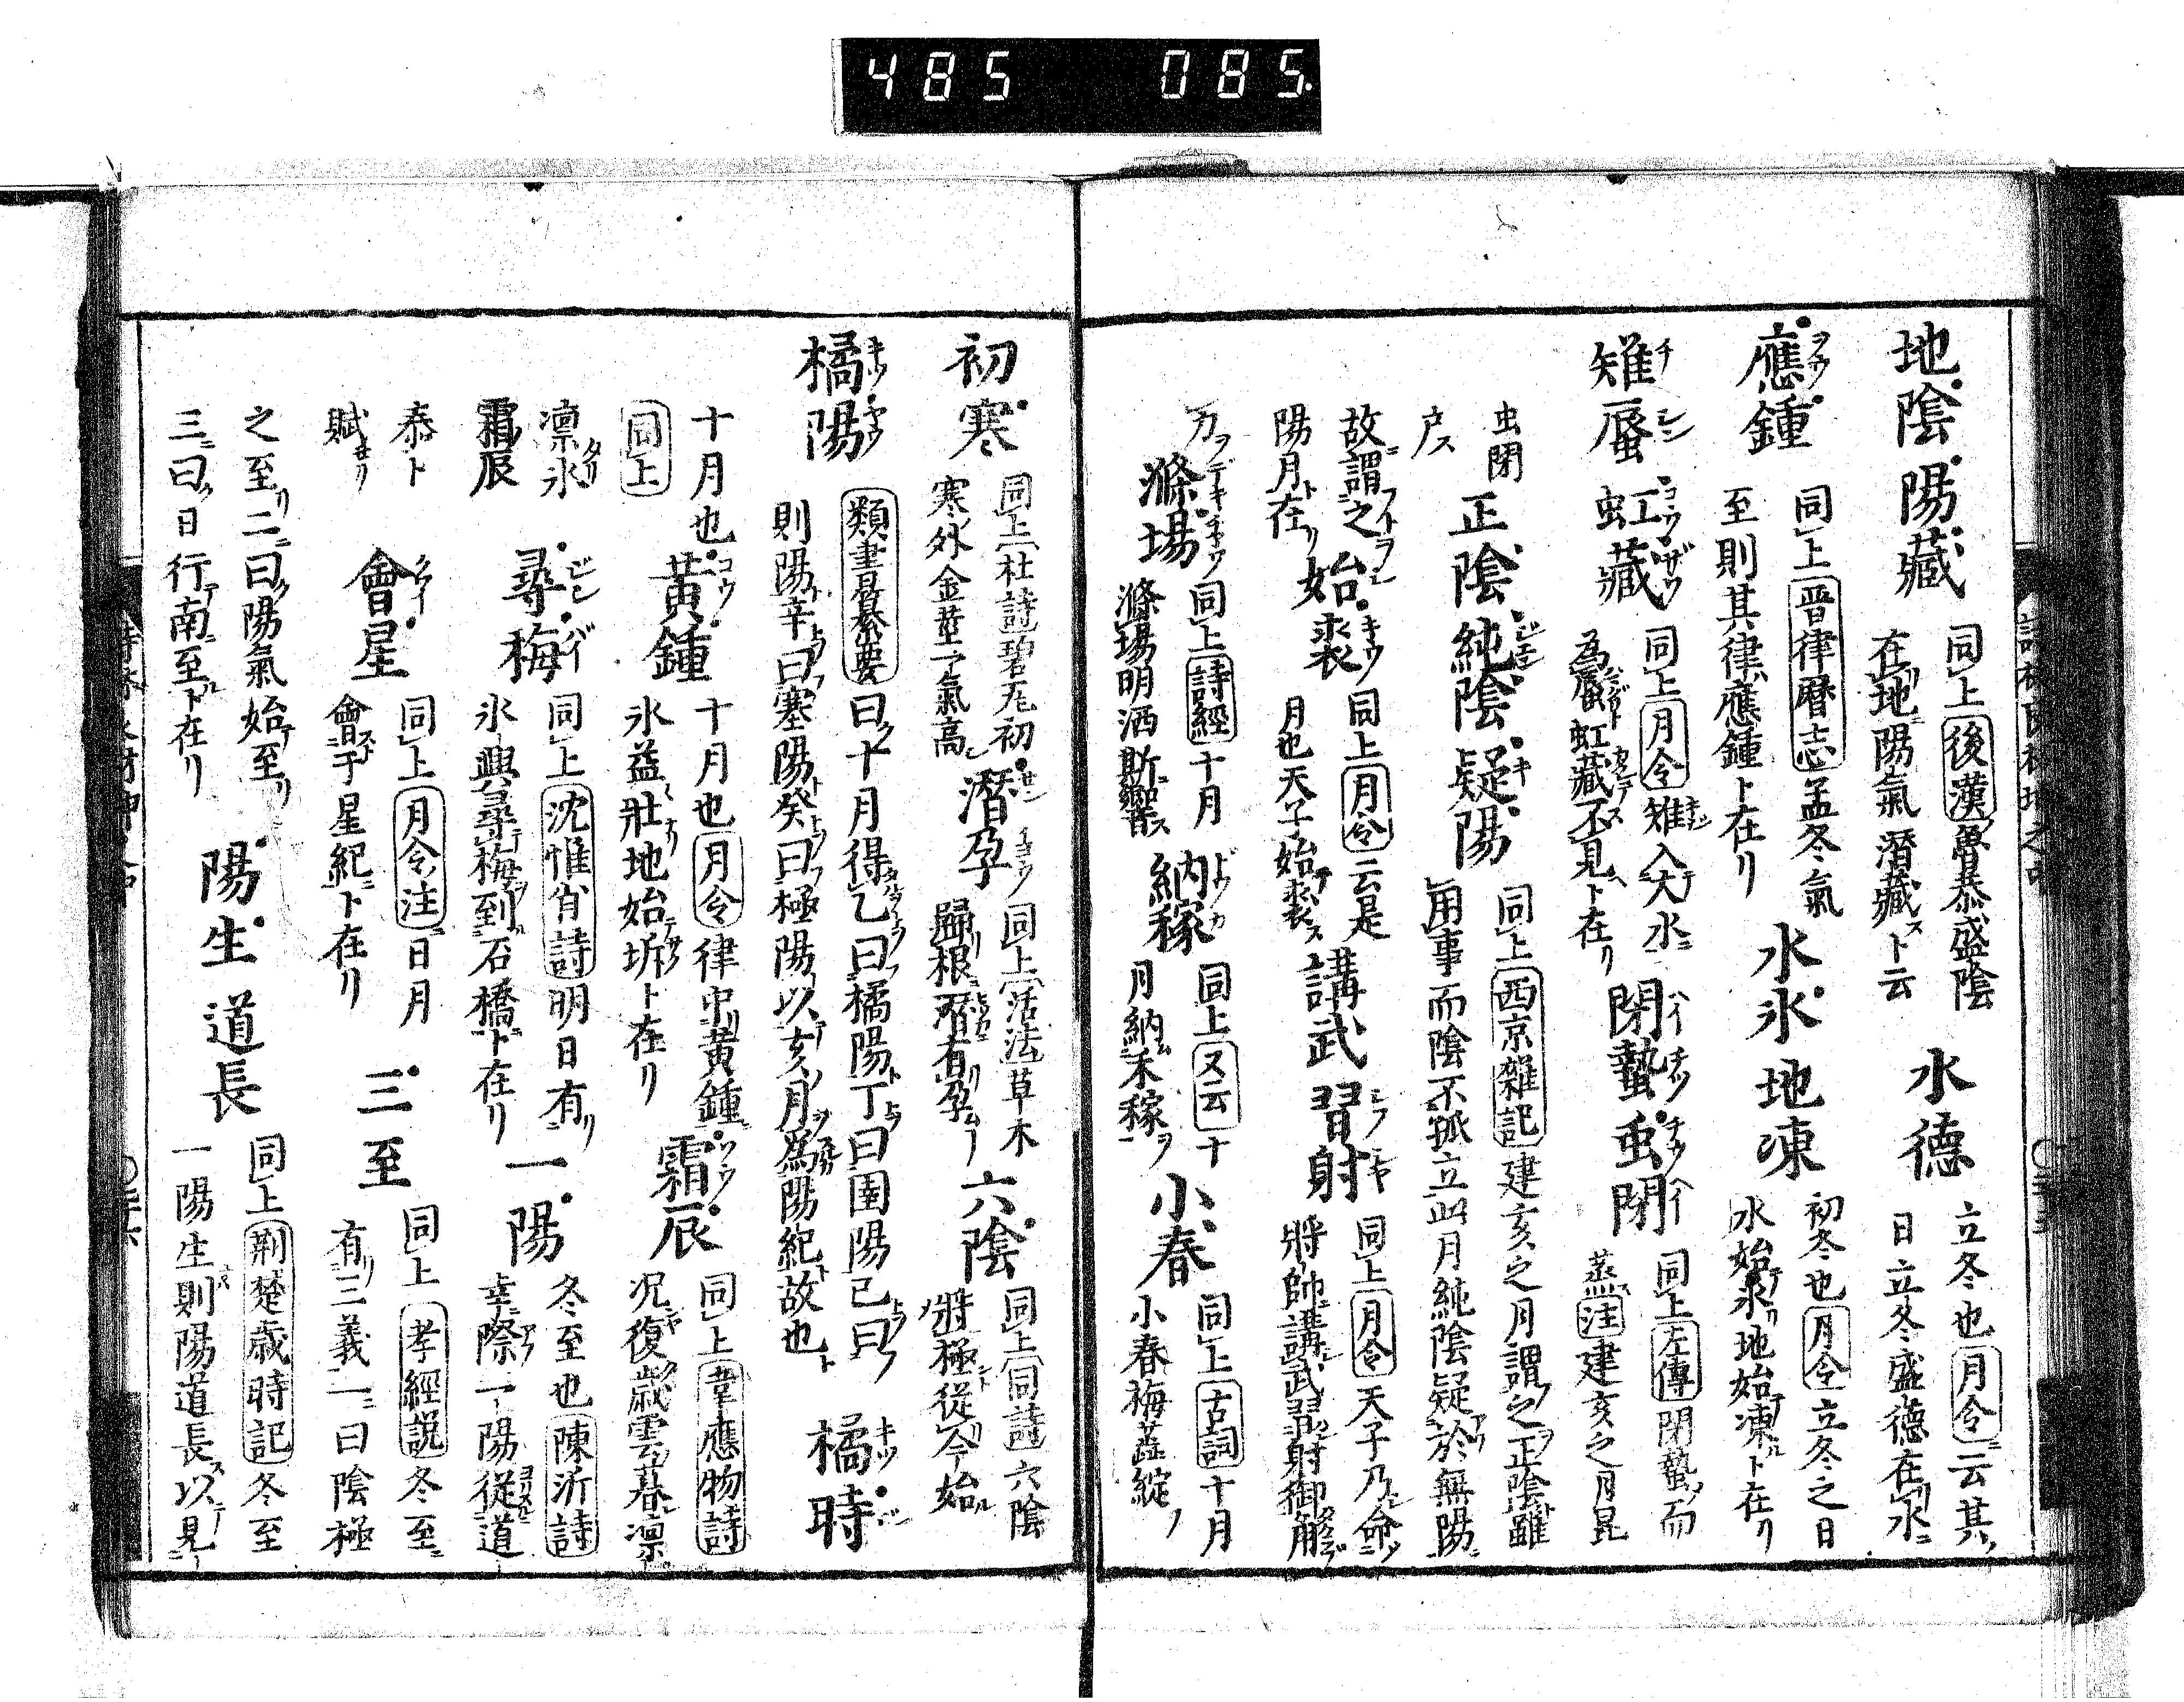 485 085.
地陰陽藏 同上後漢魯恭盛陰
在地陽氣潛藏スト云
水德 立冬也月令ニ云其
日立冬盛德在水ニ
應鍾 同上晉律曆志孟冬氣
至則其律應鍾ト在リ
水氷地凍 初冬也月令立冬之日
水始氷リ地始凍ルト在リ
雉蜃虹藏 同上月令雉入大水ニ
為蜃虹藏不見ト在リ
閉蟄虫閉 同上左傳閉蟄而
烝注建亥之月昆
虫閉
戸ス
正陰純陰疑陽 同上西京雜記建亥之月謂之正陰雖
用事而陰不孤立此月純陰疑於無陽
故謂之
陽月ト在リ
始裘 同上月令云是
月也天子始裘ス
講武習射 同上月令天子乃命
將帥講武習射御角
力ヲ
滌場 同上詩經十月
滌場明酒斯饗ス
納稼 同上又云十
月納禾稼ヲ
小春 同上古詞十月
小春梅蕋綻ノ
初寒 同上杜詩碧瓦初
寒外金莖一氣高
潛孕 同上活法草木
歸根潛有孕
六陰 同上同詩六陰
將極從今始
橘陽 類書纂要曰ク十月得乙曰橘陽ト丁曰圉陽己曰
則陽ト辛曰塞陽ト癸曰極陽以亥月爲陽紀故也ト
橘時
十月也
同上
黃鍾 十月也月令律中黃鍾
氷益壯地始坼ト在リ
霜辰 同上韋應物詩
况復歲雲暮凛
凛氷
霜辰
尋梅 同上沈惟肖詩明日有リ
氷興尋梅到石橋ト在リ
一陽 冬至也陳沂詩
幸際一陽從道
泰ト
賦セリ
會星 同上月令注日月
會于星紀ニト在リ
三至 同上孝經說冬至ニ
有三義一ニ曰陰極
之至リ二ニ曰ク陽氣始至リ
三ニ曰ク日行南至ト在リ
陽生道長 同上荆楚歲時記冬至
一陽生則陽道長ス以見